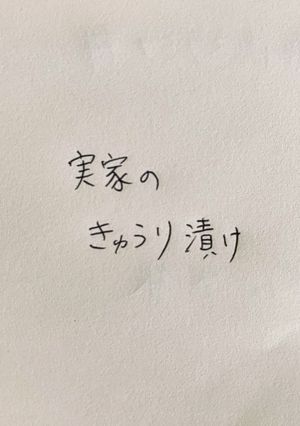 実家の
きゅうり漬け